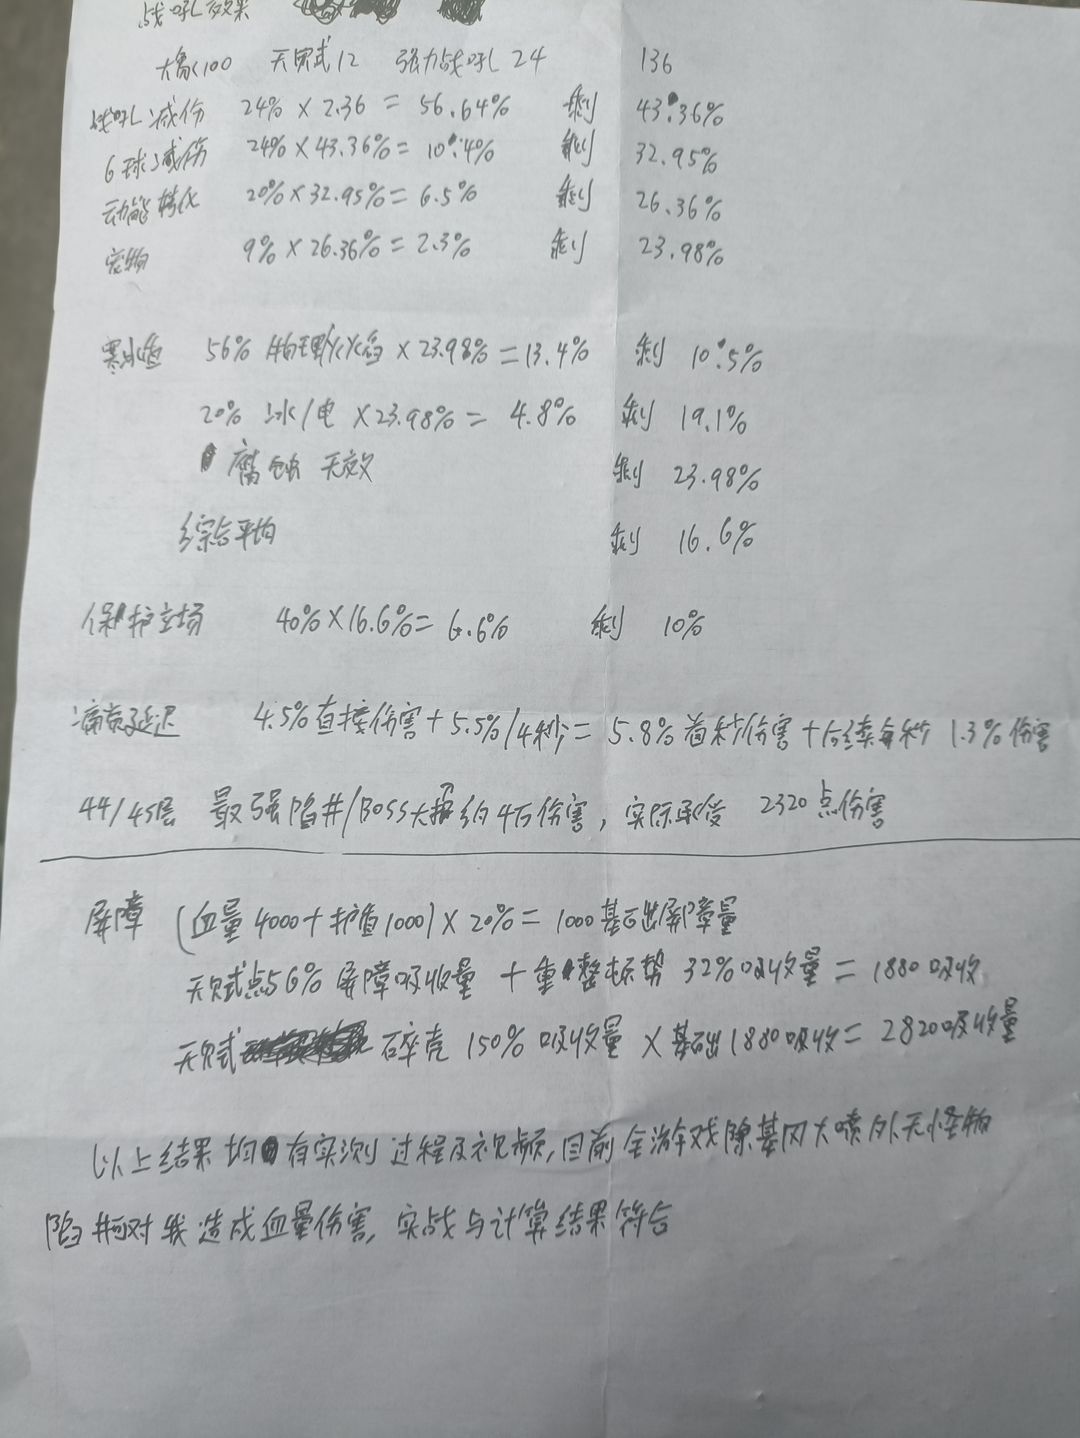 战吼效果
大象<100 天赋式12 强力战吼24 136
战吼减伤 24% × 2.36 = 56.64% 剩 43.36%
6球减伤 24% × 43.36% = 10.4% 剩 32.95%
动能转化 20% × 32.95% = 6.5% 剩 26.36%
宠物 9% × 26.36% = 2.3% 剩 23.98%
56% 物理/火焰 × 23.98% = 13.4% 剩 10.5%
20% 冰/电 × 23.98% = 4.8% 剩 19.1%
腐蚀 无效 剩 23.98%
综合平均 剩 16.6%
保护立场 40% × 16.6% = 6.6% 剩 10%
延迟 4.5%直接伤害 + 5.5%/4秒 = 5.8%首秒伤害 + 后续每秒 1.3%伤害
44/45层 最强陷井/BOSS大招约4万伤害, 实际承受 2320点伤害
屏障 (血量4000 + 护盾1000) × 20% = 1000基础屏障量
天赋式点56%屏障吸收量 + 重整态势 32%吸收量 = 1880吸收
天赋式 碎壳 150%吸收量 × 基础1880吸收 = 2820吸收量
以上结果均有实测过程及视频,目前全游戏除基因大喷外无怪物
陷井可对我造成血量伤害, 实战与计算结果符合